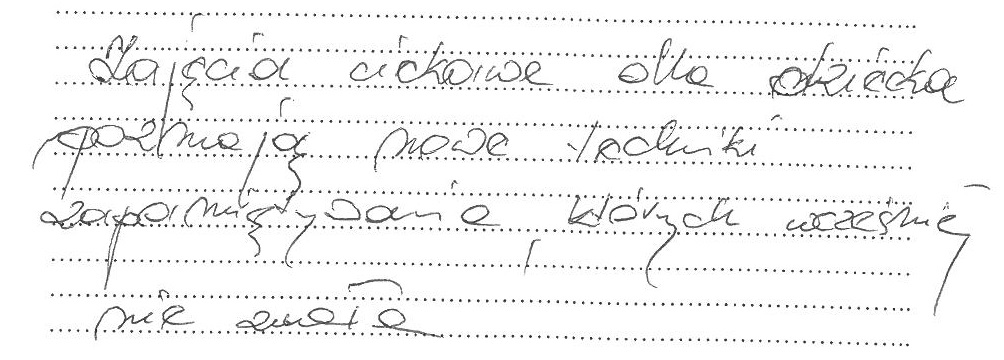 Zajęcia ciekawe dla dziecka
poznają nowe techniki
zapamiętywania, których wcześniej
nie znała